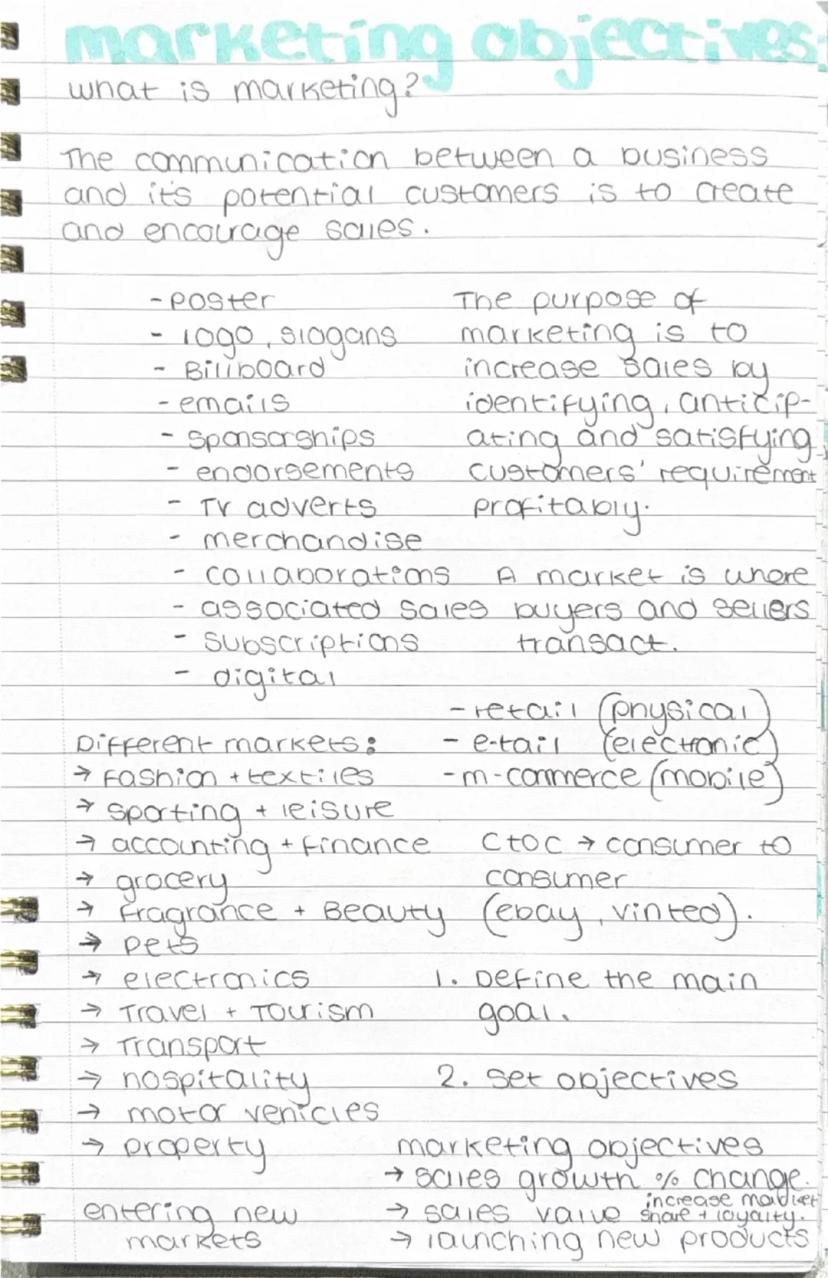 marketing objectives:
what is marketing?
The communication between a business
and it's potential customers is to create
and encourage sales.
- poster
- logo, slogans
- Billboard
- emails
- sponsorships
- endorsements
- TV adverts
- merchandise
- collaborations
- associated sales
- subscriptions
- digital
The purpose of
marketing is to
increase sales by
identifying, anticip-
ating and satisfying
customers' requirement
profitably.
A market is where
buyers and sellers
transact.
- retail (physical)
- e-tail (electronic)
- m-commerce (mobile)
Different markets:
→ fashion + textiles
→ sporting + leisure
→ accounting + finance
→ grocery
→ fragrance + Beauty
→ pets
→ electronics
→ Travel + Tourism
→ Transport
→ hospitality
→ motor vehicles
→ property
entering new
markets
CtoC → consumer to
consumer
(ebay, vinted).
1. Define the main
goal.
2. Set objectives
marketing objectives
→ sales growth % change.
→ sales value increase market
share + loyalty.
→ launching new products